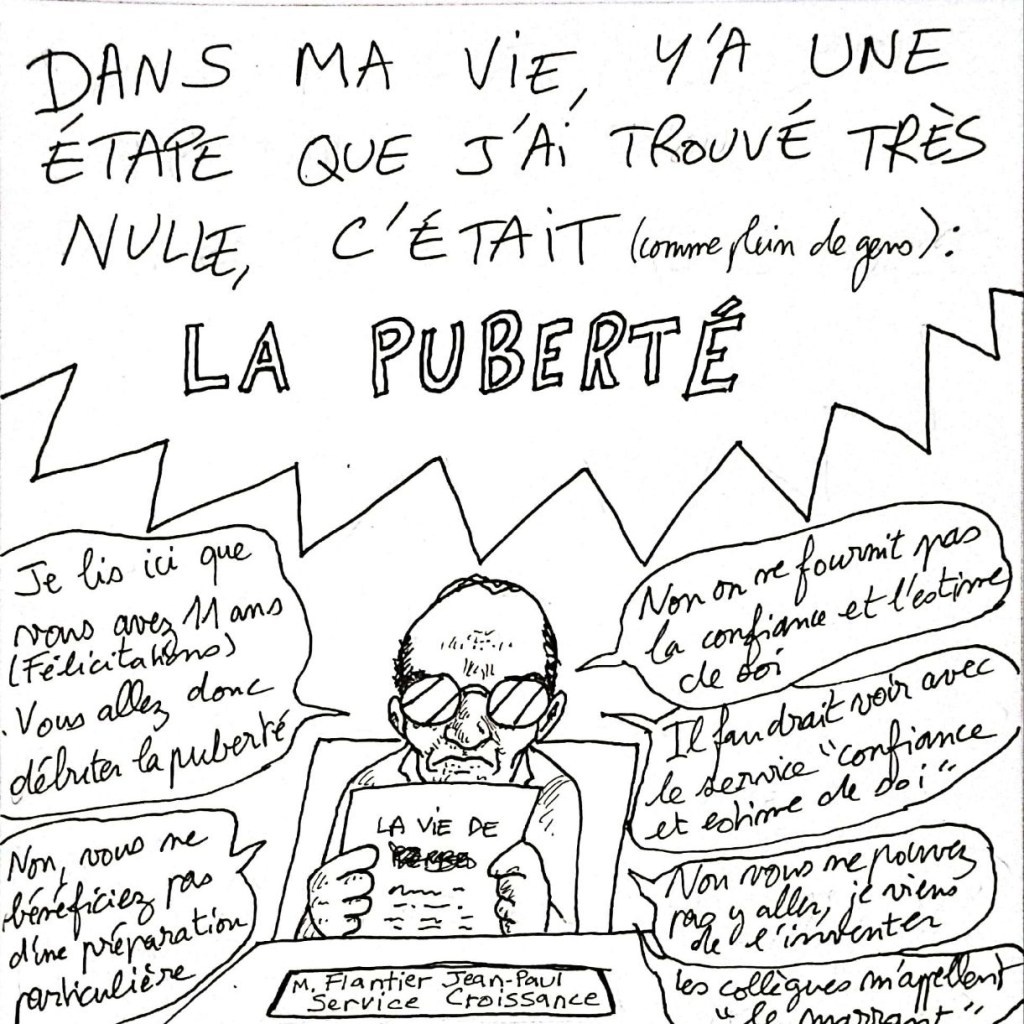 DANS MA VIE, Y'A UNE
ÉTAPE QUE J'AI TROUVÉ TRÈS
NULLE, C'ÉTAIT (comme plein de gens) :
LA PUBERTÉ
Je lis ici que
vous avez 11 ans
(Félicitations)
Vous allez donc
débuter la puberté
Non, vous ne
bénéficiez pas
d'une préparation
particulière
Non on ne fournit pas
la confiance et l'estime
de soi
Il faudrait voir avec
le service "confiance
et estime de soi"
Non vous ne pouvez
pas y aller, je viens
de l'inventer
Les collègues m'appellent
"le marrant"
LA VIE DE
M. Flantier Jean-Paul
Service Croissance